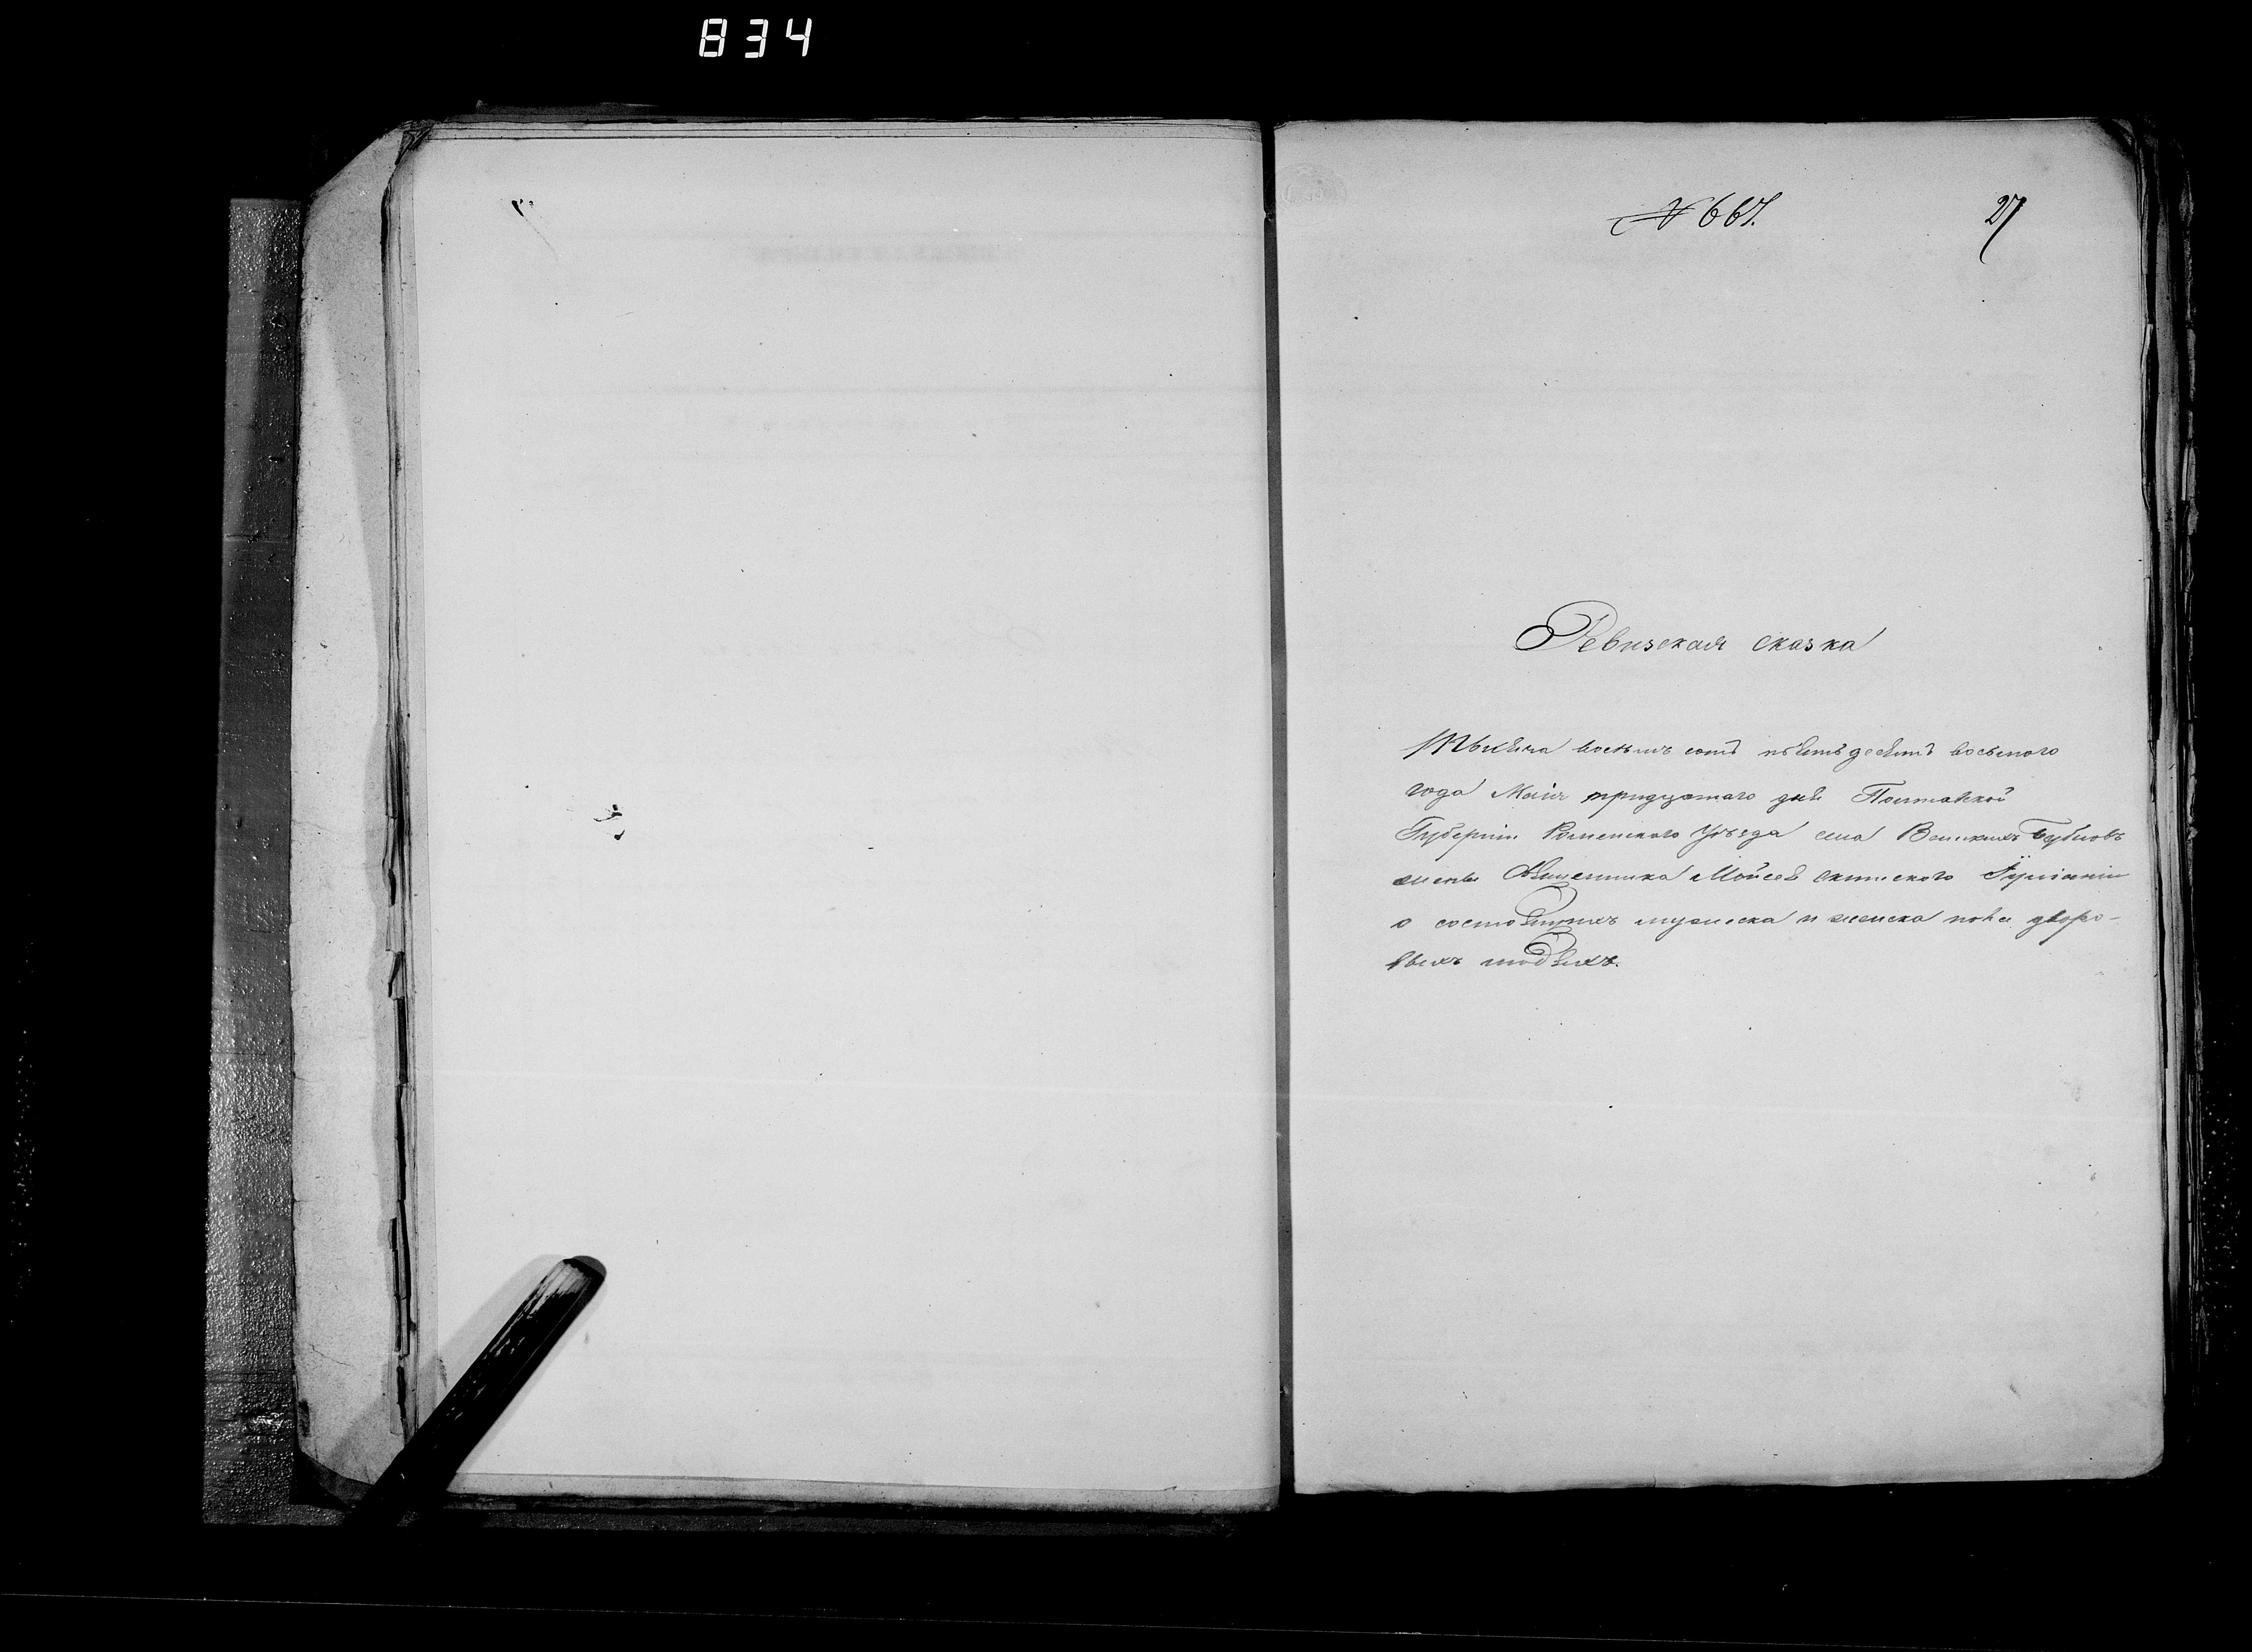 834
№ 667.
27
Ревизская сказка
Тысяча восемь сотъ пятьдесятъ восьмого
года Маія тридцатаго дня Полтавской
Губерніи Роменского Уѣзда села Великихъ Бубновъ
жены Священника Мойсея
о состоящихъ мужеска и женска пола дворо-
выхъ людяхъ.